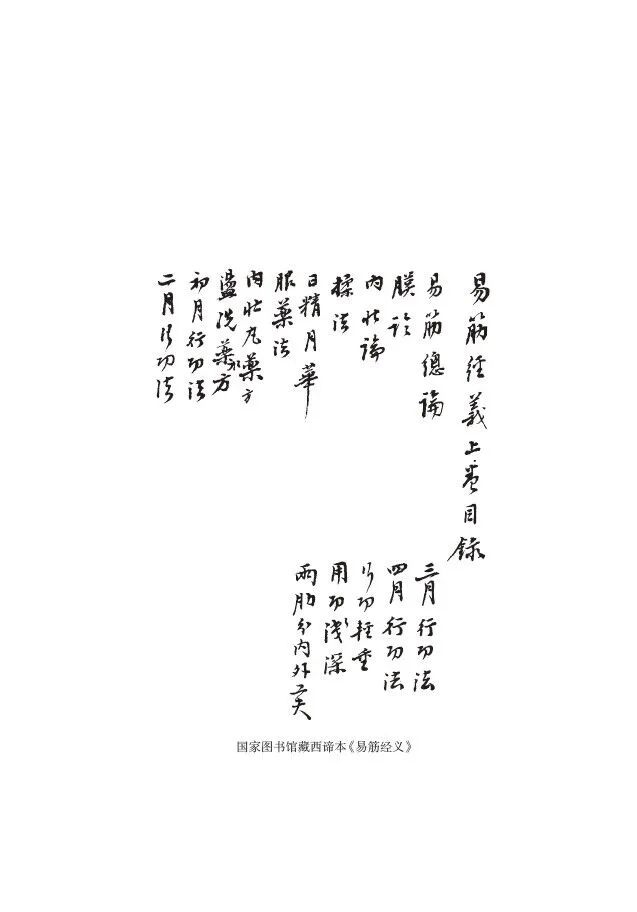 易筋經義上卷目錄
易筋總論
膜論
內壯論
揉法
日精月華
服藥法
內壯丸藥方
盪洗藥水方
初月行功法
二月行功法
三月行功法
四月行功法
行功輕重
用功淺深
兩肋分內外工夫
国家图书馆藏西谛本《易筋经义》